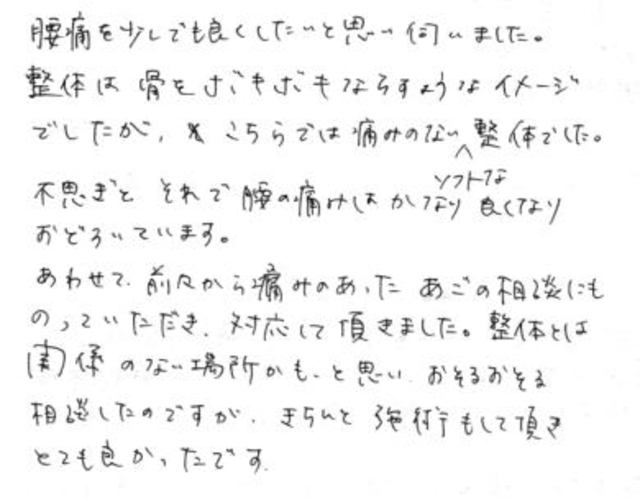 腰痛を少しでも良くしたいと思い伺いました。
整体は骨をボキボキならすようなイメージ
でしたが、こちらでは痛みのないソフトな整体でした。
不思ぎと それで腰の痛みはかなり良くなり
おどろいています。
あわせて、前々から痛みのあった あごの相談にも
のっていただき、対応して頂きました。整体とは
関係のない場所かも、と思い、おそるおそる
相談したのですが、きちんと施術もして頂き
とても良かったです